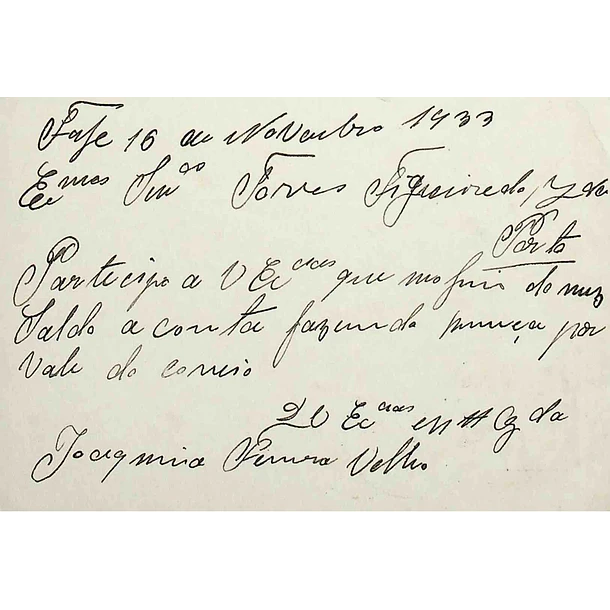 Fafe 16 de Novembro 1933
Exmos Snrs Torres Figueiredo, & Ca
Porto
Participo a V Excias que no fim do mez
Saldo a conta fazendo por
Vale do correio
Excias
Joaquina Ferreira Velho